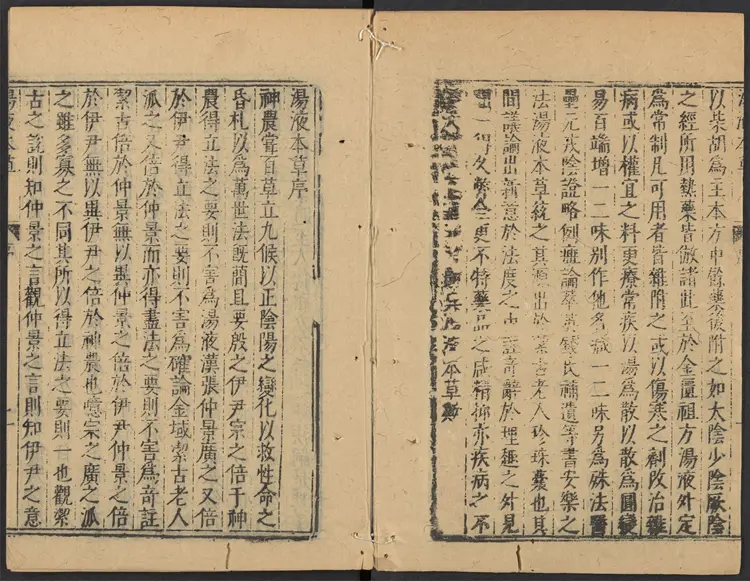 以柴胡為主本方中餘藥後附之如太陰少陰厥陰
之經所用熱藥皆倣諸此至於金匱祖方湯液外定
為常制凡可用者皆雜附之或以傷寒之劑改治雜
病或以權宜之料更療常疾以湯為散以散為圓變
易百端增一二味別作他名減一二味另為殊法醫
壘元戎陰證略例癍論萃英錢氏補遺等書安樂之
法湯液本草統之其源出於絜古老人珍珠囊也其
間議論出新意於法度之中註奇辭於理趣之外見
一得久弊全更不特藥品之咸精抑亦疾病之不
液本草歟
湯液本草序
神農嘗百草立九候以正陰陽之變化以救性命之
昏札以為萬世法既簡且要殷之伊尹宗之倍于神
農得立法之要則不害為湯液漢張仲景廣之又倍
於伊尹得立法之要則不害為確論金域絜古老人
派之又倍於仲景而亦得盡法之要則不害為奇註
絜古倍於仲景無以異仲景之倍於伊尹仲景之倍
於伊尹無以異伊尹之倍於神農也噫宗之廣之派
之雖多寡之不同其所以得立法之要則一也觀絜
古之說則知仲景之言觀仲景之言則知伊尹之意
湯液本草 序